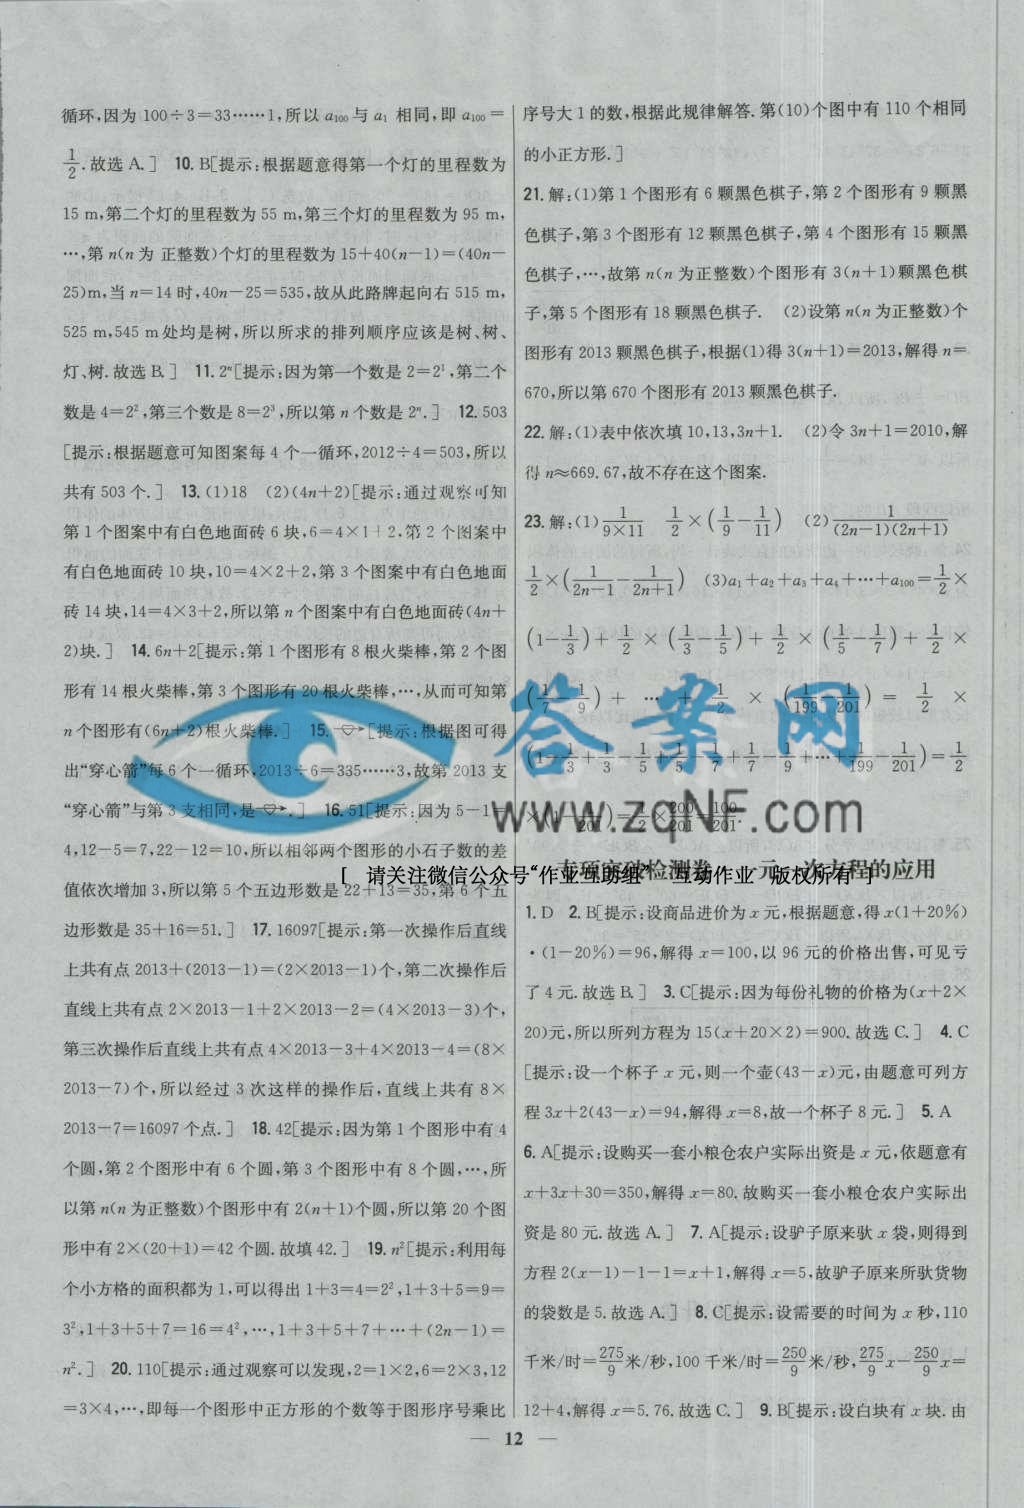 循环,因为 100÷3=33……1,所以 a₁₀₀ 与 a₁ 相同,即 a₁₀₀=
1/2.故选 A.] 10. B[提示:根据题意得第一个灯的里程数为
15 m,第二个灯的里程数为 55 m,第三个灯的里程数为 95 m,
…,第 n(n 为 正整数)个灯的里程数为 15+40(n-1)=(40n-
25)m,当 n=14 时,40n-25=535,故从此路牌起向右 515 m,
525 m,545 m 处均是树,所以所求的排列顺序应该是树、树、
灯、树.故选 B.] 11. 2ⁿ[提示:因为第一个数是 2=2¹,第二个
数是 4=2²,第三个数是 8=2³,所以第 n 个数是 2ⁿ.] 12. 503
[提示:根据题意可知图案每 4 个一循环,2012÷4=503,所以
共有 503 个.] 13. (1)18 (2)(4n+2)[提示:通过观察可知
第 1 个图案中有白色地面砖 6 块,6=4×1+2,第 2 个图案中
有白色地面砖 10 块,10=4×2+2,第 3 个图案中有白色地面
砖 14 块,14=4×3+2,所以第 n 个图案中有白色地面砖(4n+
2)块.] 14. 6n+2[提示:第 1 个图形有 8 根火柴棒,第 2 个图
形有 14 根火柴棒,第 3 个图形有 20 根火柴棒,…,从而可知第
n 个图形有(6n+2)根火柴棒.] 15. [提示:根据图可得
出“穿心箭”每 6 个一循环,2013÷6=335……3,故第 2013 支
“穿心箭”与第 3 支相同,是 .] 16. 51[提示:因为 5-1=
4,12-5=7,22-12=10,所以相邻两个图形的小石子数的差
值依次增加 3,所以第 5 个五边形数是 22+13=35,第 6 个五
边形数是 35+16=51.] 17. 16097[提示:第一次操作后直线
上共有点 2013+(2013-1)=(2×2013-1)个,第二次操作后
直线上共有点 2×2013-1+2×2013-2=(4×2013-3)个,
第三次操作后直线上共有点 4×2013-3+4×2013-4=(8×
2013-7)个,所以经过 3 次这样的操作后,直线上共有 8×
2013-7=16097 个点.] 18. 42[提示:因为第 1 个图形中有 4
个圆,第 2 个图形中有 6 个圆,第 3 个图形中有 8 个圆,…,所
以第 n(n 为正整数)个图形中有 2(n+1)个圆,所以第 20 个图
形中有 2×(20+1)=42 个圆.故填 42.] 19. n²[提示:利用每
个小方格的面积都为 1,可以得出 1+3=4=2²,1+3+5=9=
3²,1+3+5+7=16=4²,…,1+3+5+7+…+(2n-1)=
n².] 20. 110[提示:通过观察可以发现,2=1×2,6=2×3,12
=3×4,…,即每一个图形中正方形的个数等于图形序号乘比
序号大 1 的数,根据此规律解答.第(10)个图中有 110 个相同
的小正方形.]
21. 解:(1)第 1 个图形有 6 颗黑色棋子,第 2 个图形有 9 颗黑
色棋子,第 3 个图形有 12 颗黑色棋子,第 4 个图形有 15 颗黑
色棋子,…,故第 n(n 为正整数)个图形有 3(n+1)颗黑色棋
子,第 5 个图形有 18 颗黑色棋子. (2)设第 n(n 为正整数)个
图形有 2013 颗黑色棋子,根据(1)得 3(n+1)=2013,解得 n=
670,所以第 670 个图形有 2013 颗黑色棋子.
22. 解:(1)表中依次填 10,13,3n+1. (2)令 3n+1=2010,解
得 n≈669.67,故不存在这个图案.
23. 解:(1) 1/(9×11) 1/2×(1/9-1/11) (2) 1/((2n-1)(2n+1))
1/2×(1/(2n-1)-1/(2n+1)) (3)a₁+a₂+a₃+a₄+…+a₁₀₀=1/2×
(1-1/3)+1/2×(1/3-1/5)+1/2×(1/5-1/7)+1/2×
(1/7-1/9)+…+1/2×(1/199-1/201)=1/2×
(1-1/3+1/3-1/5+1/5-1/7+1/7-1/9+…+1/199-1/201)=1/2
×(1-1/201)=1/2×200/201=100/201.
答案网
www.zqNF.com
专项突破检测卷 一元一次方程的应用
[ 请关注微信公众号“作业互助组” 互动作业 版权所有 ]
1. D 2. B[提示:设商品进价为 x 元,根据题意,得 x(1+20%)
·(1-20%)=96,解得 x=100,以 96 元的价格出售,可见亏
了 4 元.故选 B.] 3. C[提示:因为每份礼物的价格为(x+2×
20)元,所以所列方程为 15(x+20×2)=900.故选 C.] 4. C
[提示:设一个杯子 x 元,则一个壶(43-x)元,由题意可列方
程 3x+2(43-x)=94,解得 x=8,故一个杯子 8 元.] 5. A
6. A[提示:设购买一套小粮仓农户实际出资是 x 元,依题意有
x+3x+30=350,解得 x=80.故购买一套小粮仓农户实际出
资是 80 元.故选 A.] 7. A[提示:设驴子原来驮 x 袋,则得到
方程 2(x-1)-1-1=x+1,解得 x=5,故驴子原来所驮货物
的袋数是 5.故选 A.] 8. C[提示:设需要的时间为 x 秒,110
千米/时=275/9米/秒,100 千米/时=250/9米/秒,275/9x-250/9x=
12+4,解得 x=5.76.故选 C.] 9. B[提示:设白块有 x 块.由
— 12 —